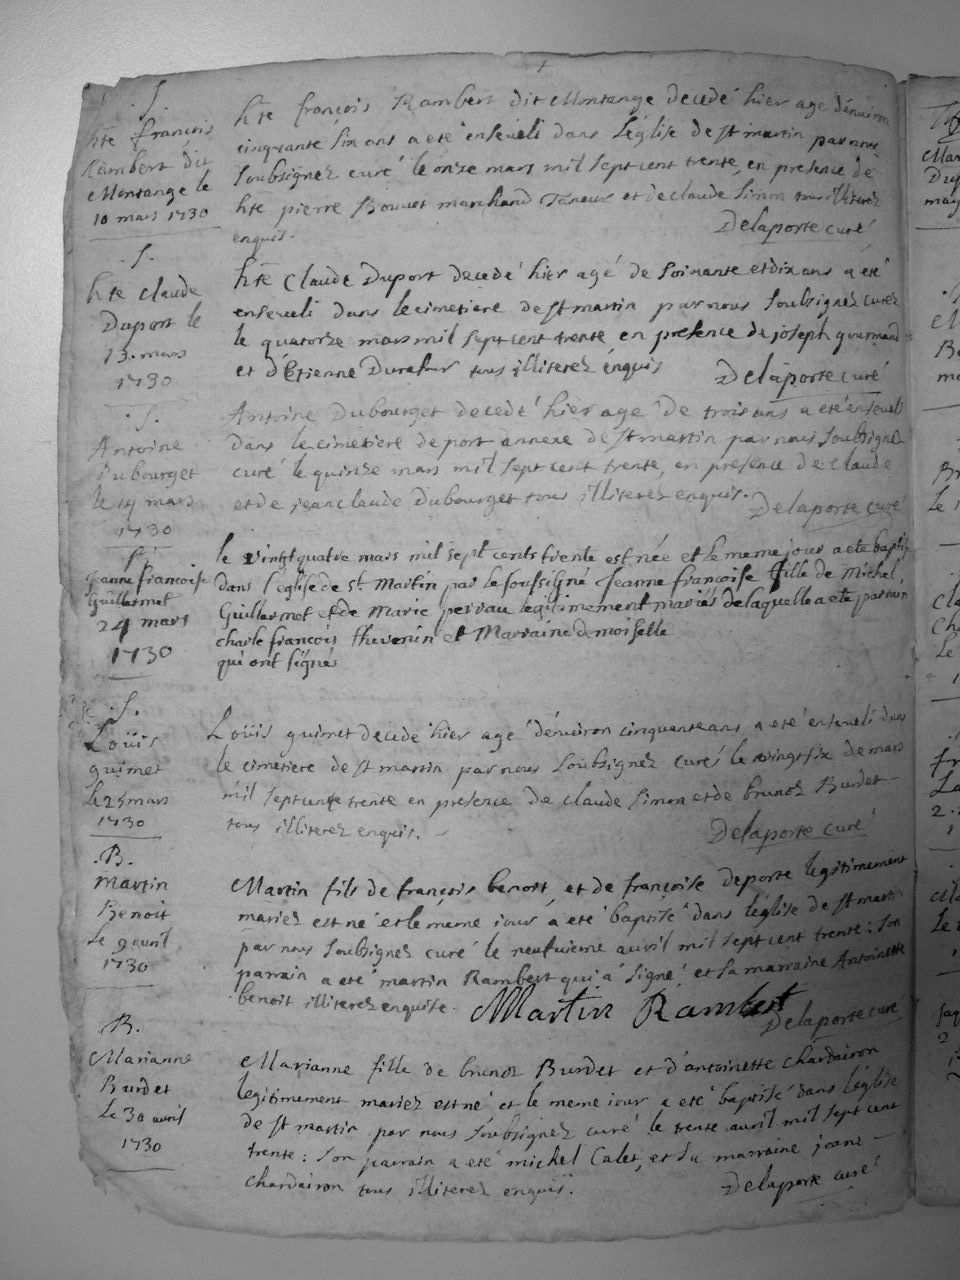 .S.
hte françois
Rambert dit
Montange le
10 mars 1730
hte françois Rambert dit Montange decedé hier age dénviron
cinquante six ans a eté enséveli dans l'église de st martin par nous
soubsignez curé le onze mars mil sept cent trente, en presence de
hte pierre Bouvet marchand Taneur et de claude Simon tous illiterez
enquis.
Delaporte curé
.S.
hte claude
Duport le
13. mars
1730
hte Claude Duport decedé hier agé de soixante et dix ans a eté
enseveli dans le cimetiere de st martin par nous soubsignez curé
le quatorze mars mil sept cent trente en presence de joseph gourmand
et d'Etienne tous illiterez énquis
Delaporte curé
.S.
Antoine
dubourget
le 14 mars
1730
Antoine Dubourget decedé hier age de trois ans a eté enseveli
dans le cimetiere de port annexe de st martin par nous soubsignez
curé le quinze mars mil sept cent trente, en presence de claude
et de jean claude dubourget tous illiterez enquis.
Delaporte curé
jeanne francoise
Guillermet
24 mars
1730
le vingt quatre mars mil sept cents trente est née et le meme jour a eté baptisé
dans l'église de st. Martin par le soussigné Jeanne francoise fille de Michel
Guillermet et de Marie perrau legitimement mariés de laquelle a eté parrain
charle françois thevenin et Marraine demoiselle
qui ont signés
.S.
Loüis
guimet
Le 25 mars
1730
Loüis guimet decedé hier agé dénviron cinquante ans, a eté enseveli dans
le cimetiere de st martin par nous soubsignez curé le vingt six de mars
mil sept cent trente en presence de claude simon et de brunoz Burdet
tous illiterez enquis.
Delaporte curé
.B.
Martin
Benoit
Le 9 avril
1730
Martin fils de françois benoit et de françoise deporte legitimement
mariez est né et le meme jour a eté baptisé dans l'église de st martin
par nous soubsignez curé le neufvieme avril mil sept cent trente: son
parrain a eté martin Rambert qui a signé et sa marraine Antoinette
benoit illiterez enquise.
Martin Rambert
Delaporte curé
.B.
Marianne
Burdet
Le 30 avril
1730
Marianne fille de brunoz Burdet et d'antoinette chardairon
legitimement mariez est né et le meme jour a eté baptisé dans l'église
de st martin par nous soubsignez curé le trente avril mil sept cent
trente: son parrain a eté michel Calet, et sa marraine jeane
chardairon tous illiterez enquis.
Delaporte curé